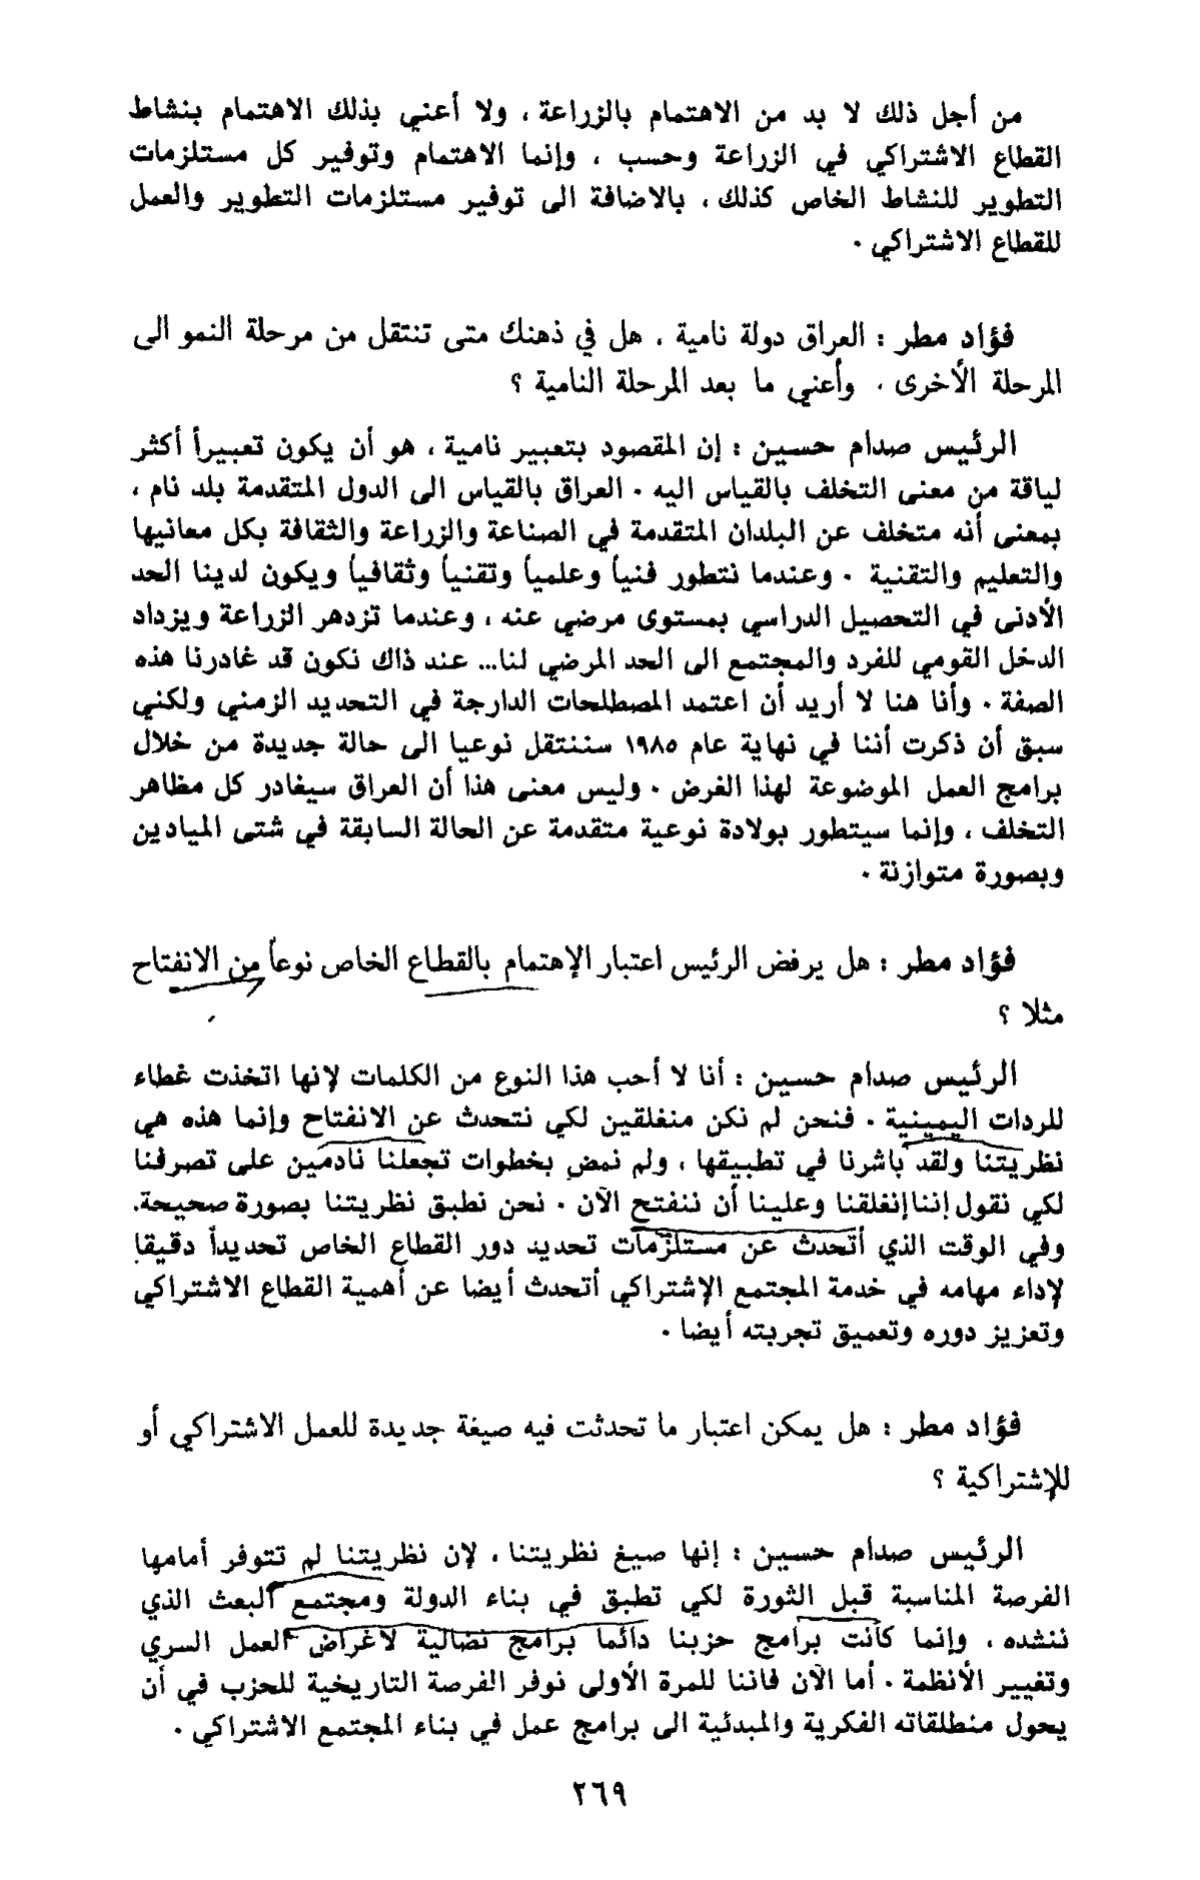 من أجل ذلك لا بد من الاهتمام بالزراعة ، ولا أعني بذلك الاهتمام بنشاط
القطاع الاشتراكي في الزراعة وحسب ، وإنما الاهتمام وتوفير كل مستلزمات
التطوير للنشاط الخاص كذلك ، بالاضافة الى توفير مستلزمات التطوير والعمل
للقطاع الاشتراكي ٠
فؤاد مطر : العراق دولة نامية ، هل في ذهنك متى تنتقل من مرحلة النمو الى
المرحلة الأخرى ، وأعني ما بعد المرحلة النامية ؟
الرئيس صدام حسين : إن المقصود بتعبير نامية ، هو أن يكون تعبيراً أكثر
لياقة من معنى التخلف بالقياس اليه ٠ العراق بالقياس الى الدول المتقدمة بلد نام ،
بمعنى أنه متخلف عن البلدان المتقدمة في الصناعة والزراعة والثقافة بكل معانيها
والتعليم والتقنية ٠ وعندما نتطور فنياً وعلمياً وتقنياً وثقافياً ويكون لدينا الحد
الأدنى في التحصيل الدراسي بمستوى مرضي عنه ، وعندما تزدهر الزراعة ويزداد
الدخل القومي للفرد والمجتمع الى الحد المرضي لنا... عند ذاك نكون قد غادرنا هذه
الصفة ٠ وأنا هنا لا أريد أن اعتمد المصطلحات الدارجة في التحديد الزمني ولكني
سبق أن ذكرت أننا في نهاية عام ١٩٨٥ سننتقل نوعيا الى حالة جديدة من خلال
برامج العمل الموضوعة لهذا الغرض ٠ وليس معنى هذا أن العراق سيغادر كل مظاهر
التخلف ، وإنما سيتطور بولادة نوعية متقدمة عن الحالة السابقة في شتى الميادين
وبصورة متوازنة ٠
فؤاد مطر : هل يرفض الرئيس اعتبار الإهتمام بالقطاع الخاص نوعاً من الانفتاح
مثلا ؟
الرئيس صدام حسين : أنا لا أحب هذا النوع من الكلمات لإنها اتخذت غطاء
للردات اليمينية ٠ فنحن لم نكن منغلقين لكي نتحدث عن الانفتاح وإنما هذه هي
نظريتنا ولقد باشرنا في تطبيقها ، ولم نمض بخطوات تجعلنا نادمين على تصرفنا
لكي نقول إننا إنغلقنا وعلينا أن ننفتح الآن ٠ نحن نطبق نظريتنا بصورة صحيحة.
وفي الوقت الذي أتحدث عن مستلزمات تحديد دور القطاع الخاص تحديداً دقيقا
لإداء مهامه في خدمة المجتمع الإشتراكي أتحدث أيضا عن أهمية القطاع الاشتراكي
وتعزيز دوره وتعميق تجربته أيضا ٠
فؤاد مطر : هل يمكن اعتبار ما تحدثت فيه صيغة جديدة للعمل الاشتراكي أو
للإشتراكية ؟
الرئيس صدام حسين : إنها صيغ نظريتنا ، لإن نظريتنا لم تتوفر أمامها
الفرصة المناسبة قبل الثورة لكي تطبق في بناء الدولة ومجتمع البعث الذي
ننشده ، وإنما كانت برامج حزبنا دائما برامج نضالية لأغراض العمل السري
وتغيير الأنظمة ٠ أما الآن فاننا للمرة الأولى نوفر الفرصة التاريخية للحزب في أن
يحول منطلقاته الفكرية والمبدئية الى برامج عمل في بناء المجتمع الاشتراكي ٠
٢٦٩